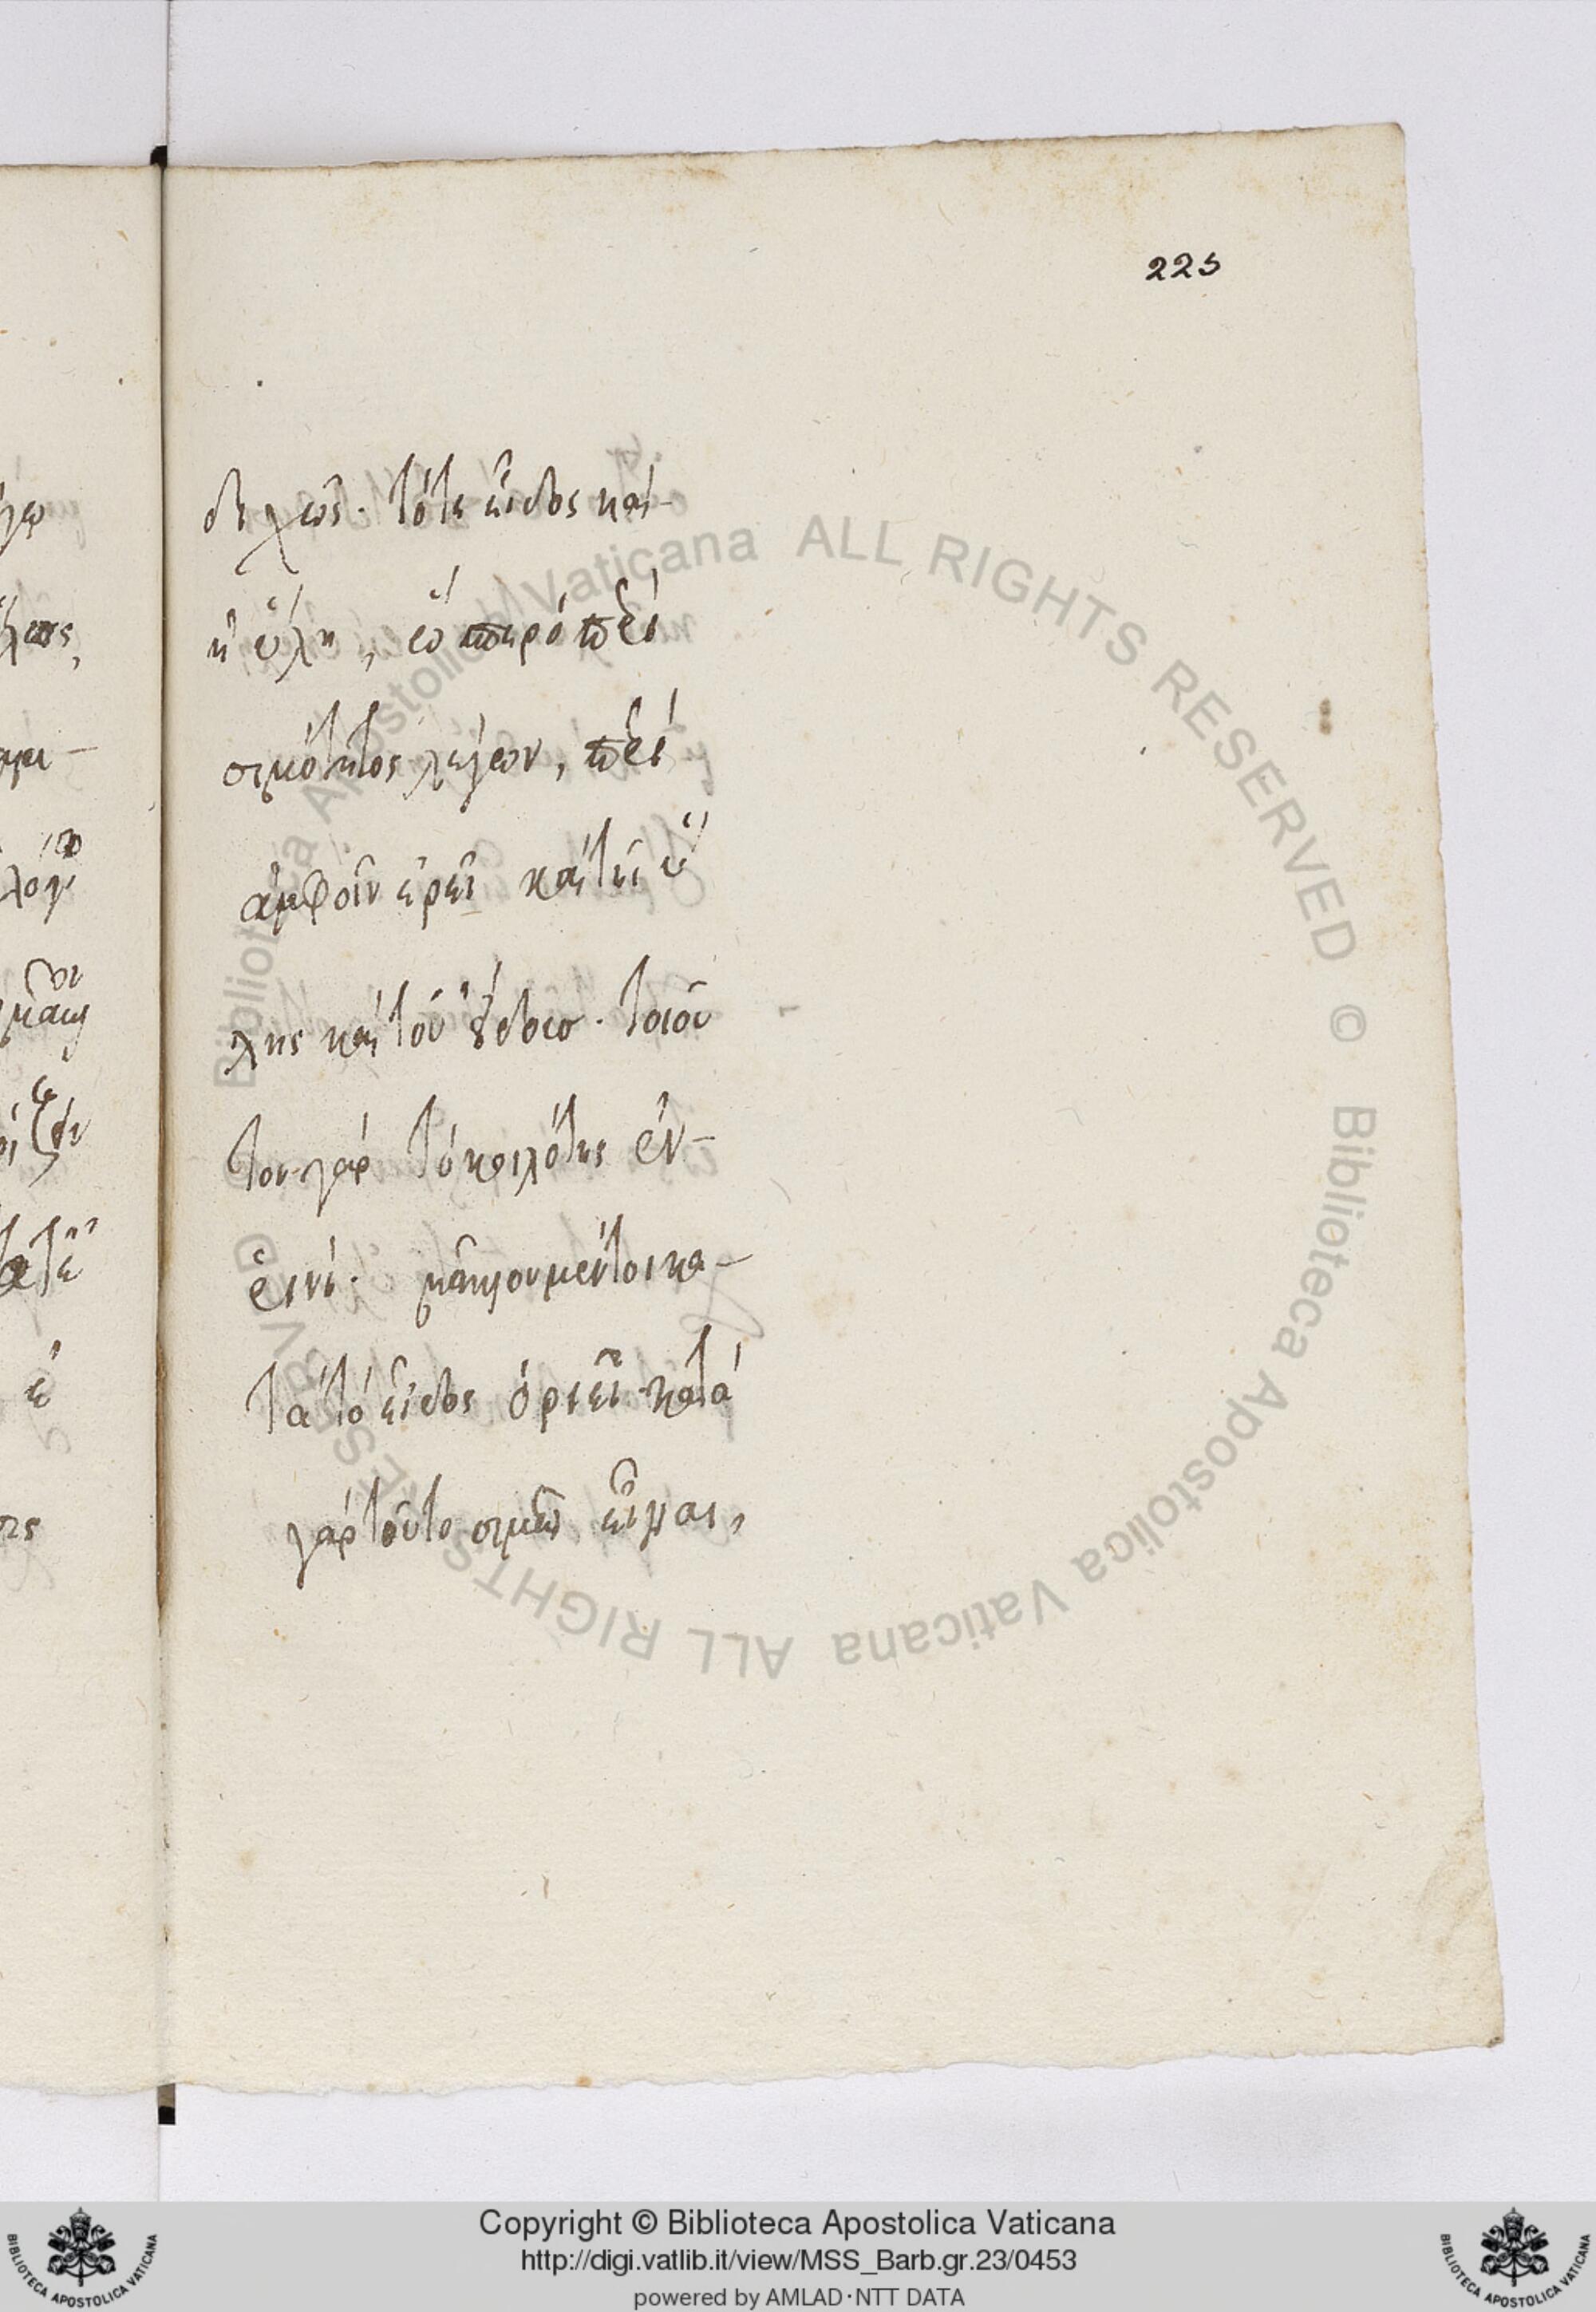 225
διχῶς· τό τε εἶδος καὶ
ἡ ὕλη, ὥσπερ ὁ περὶ
σιμότητος λέγων, περὶ
ἀμφοῖν ἐρεῖ καὶ τῆς ὕ
λης καὶ τοῦ εἴδους· τοιοῦ
τον γὰρ τὸ κοιλότης ἐν
ῥινί· μᾶλλον μέντοι κα
τὰ τὸ εἶδος ὁριεῖ· κατὰ
γὰρ τοῦτο σιμῷ εἶναι,
Biblioteca Apostolica Vaticana ALL RIGHTS RESERVED © Biblioteca Apostolica Vaticana ALL RIGHTS RESERVED
Copyright © Biblioteca Apostolica Vaticana
http://digi.vatlib.it/view/MSS_Barb.gr.23/0453
powered by AMLAD·NTT DATA
BIBLIOTECA APOSTOLICA VATICANA
BIBLIOTECA APOSTOLICA VATICANA